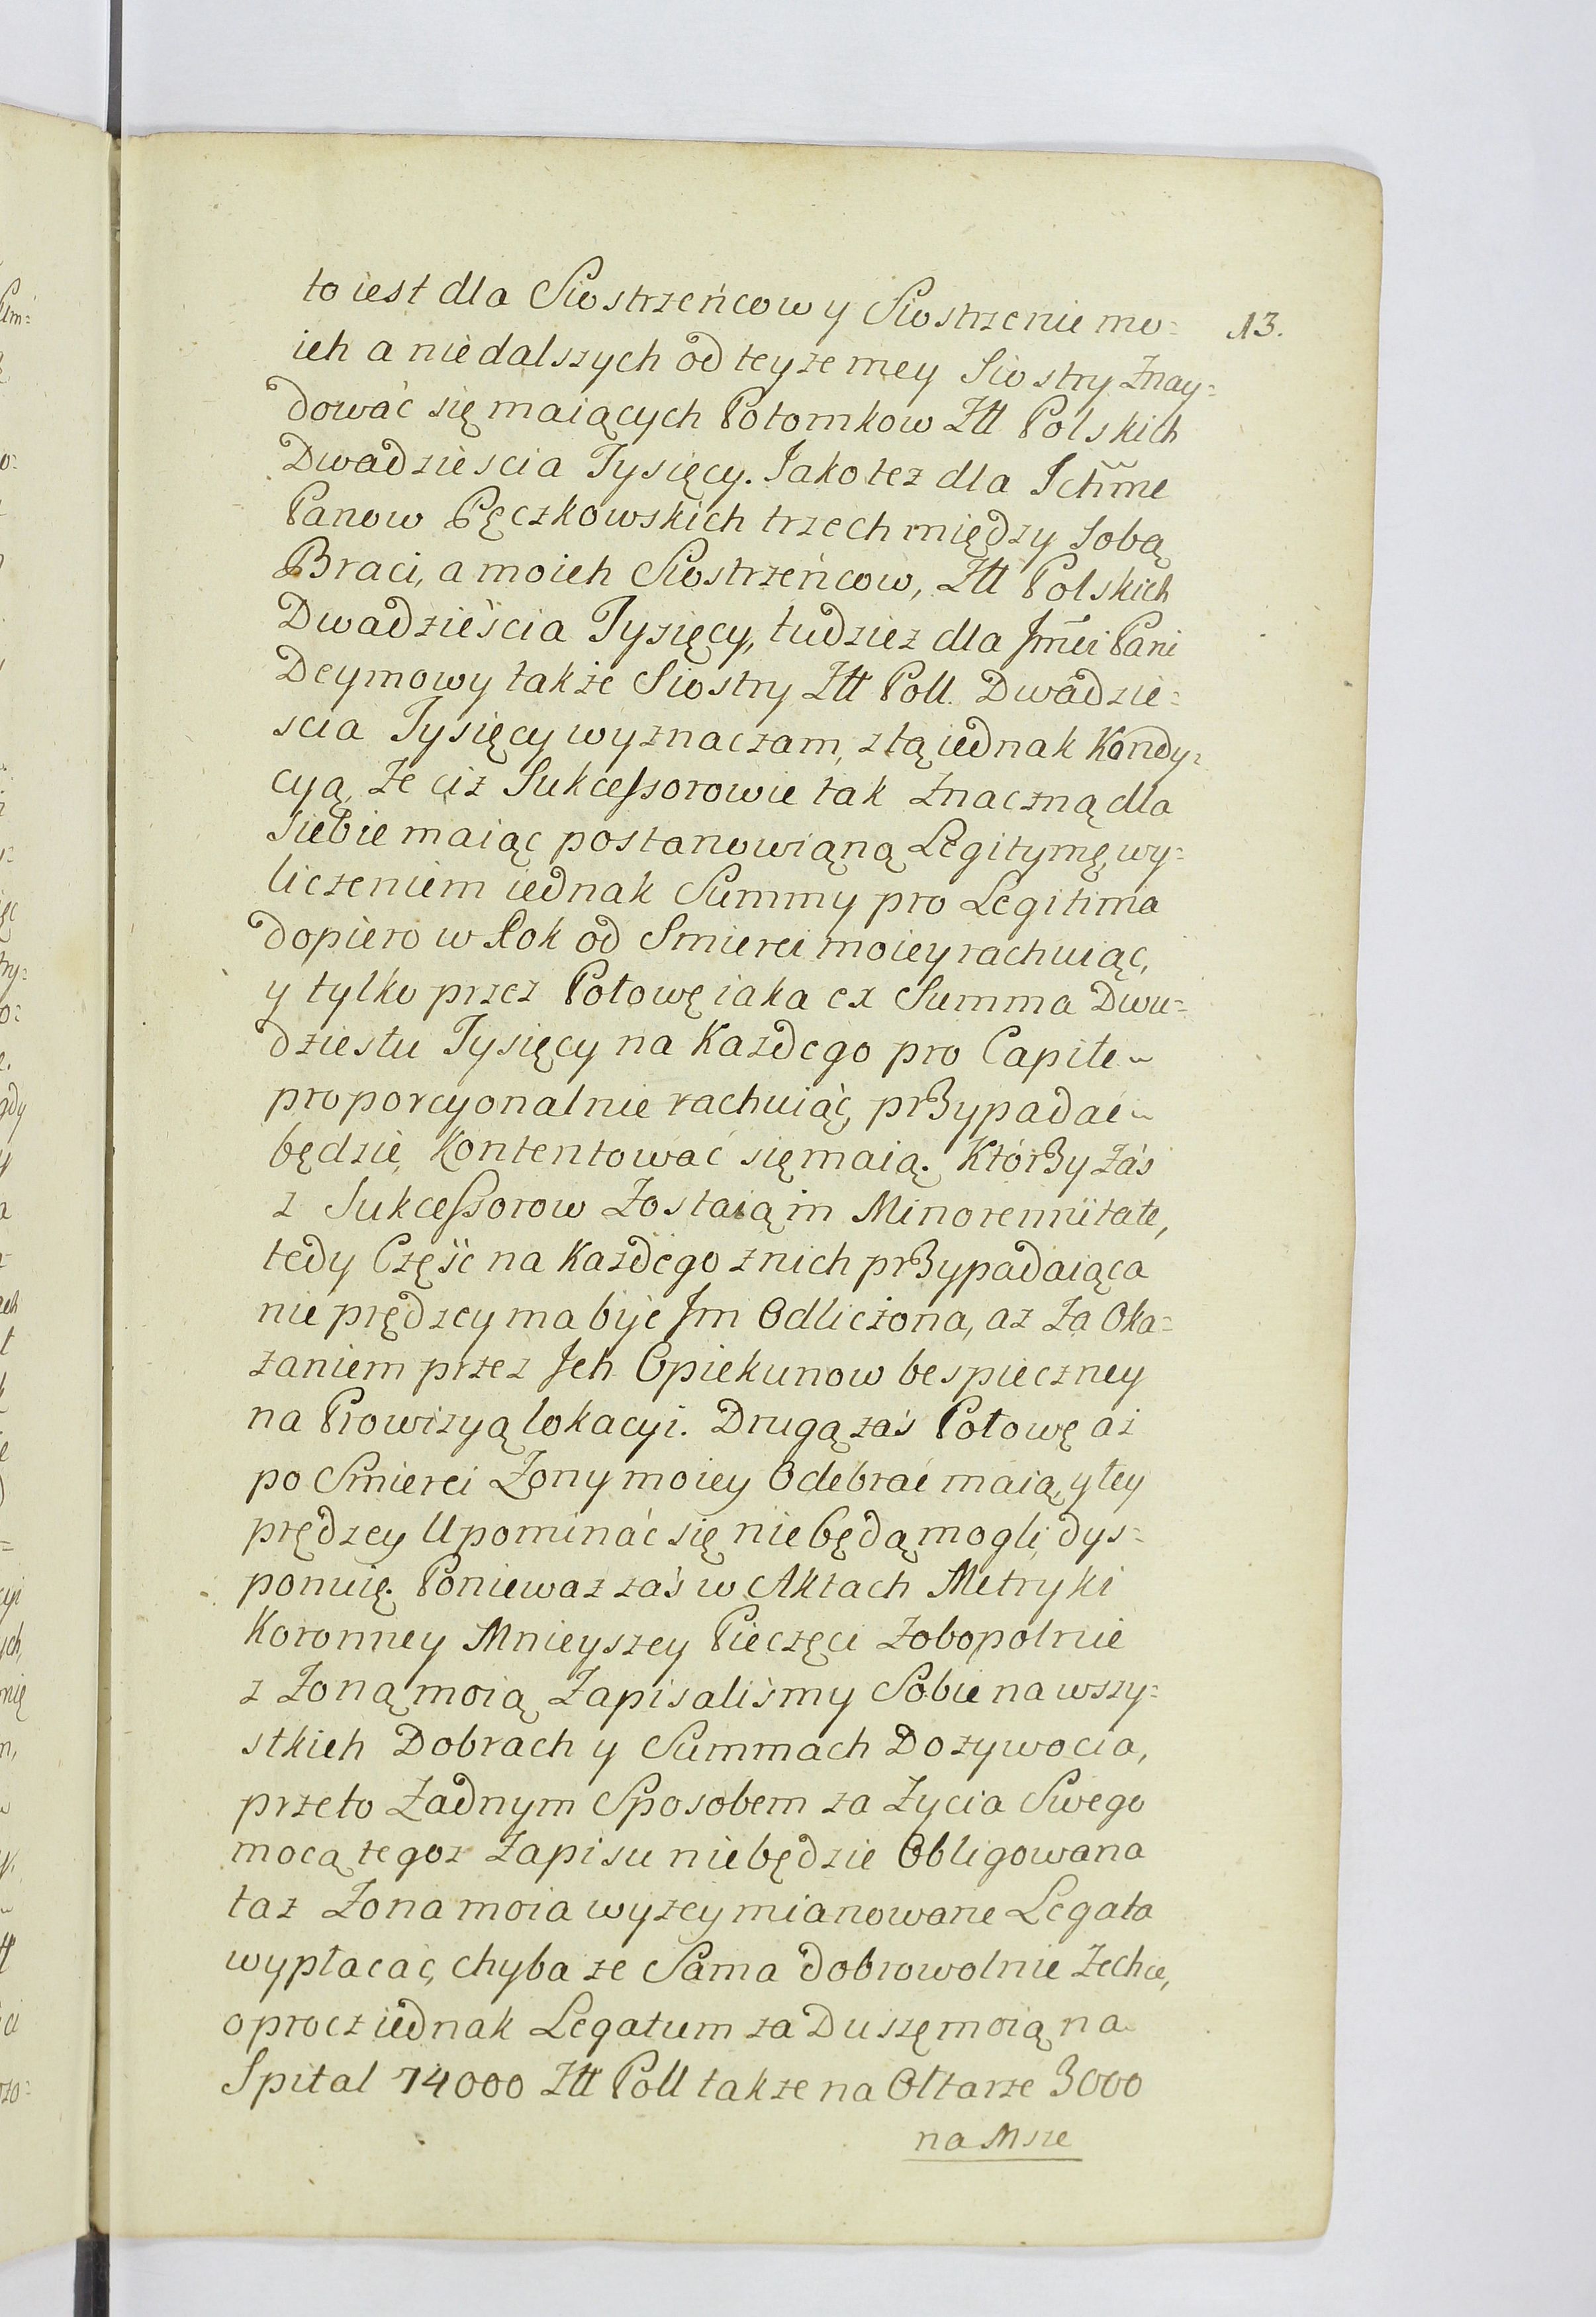 13.
to iest dla Siostrzeńcow y Siostrzenic mo=
ich a nie dalszych od teyże mey Siostry znay=
dować się maiących Potomkow Ztt Polskich
Dwadzieścia Tysięcy. Jako tez dla Ichm̃c
Panow Pęczkowskich trzech między sobą
Braci, a moich Siostrzeńcow, Ztt Polskich
Dwadzieścia Tysięcy, tudziez dla Jm̃ci Pani
Deymowy także Siostry Ztt Poll. Dwadzie=
scia Tysięcy wyznaczam, z tą iednak Kondy=
cyą, że ciż Sukcessorowie tak znaczną dla
siebie maiąc postanowianą Legitymę, wy=
liczeniem iednak Summy pro Legitima
dopiero w Rok od Smierci moiey rachuiąc,
y tylko przez Połowę iaka ex Summa Dwu=
dziestu Tysięcy na Kazdego pro Capite
proporcyonalnie rachuiąc, przypadać
będzie, Kontentować się maią. Którzy zaś
z Sukcessorow zostaią in Minorennitate,
tedy Część na Kazdego z nich przypadaiąca
nie prędzey ma być Jm Odliczona, aż za Oka=
zaniem przez Jch Opiekunow bespieczney
na Prowizyą lokacyi. Drugą zaś Połowę aż
po Smierci Zony moiey Odebrać maią, y tey
prędzey Upominać się nie będą mogli, dys=
ponuię. Poniewaz zaś w Aktach Metryki
Koronney Mnieyszey Pieczęci zobopolnie
z Zoną moią Zapisaliśmy Sobie na wszy=
stkich Dobrach y Summach Dozywocia,
przeto Żadnym Sposobem za Zycia Swego
mocą tegoż Zapisu nie będzie Obligowana
taż Zona moia wyzey mianowane Legata
wypłacać, chyba ze Sama dobrowolnie Zechce,
oprocz iednak Legatum za Duszę moią na
Spital 14000 Ztt Poll także na Ołtarze 3000
na Msze